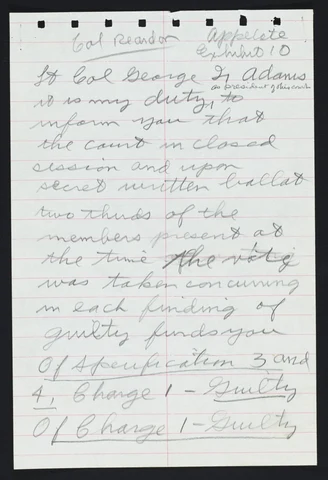 Col Reardon
Appelete
Exhibit 10
Lt Col George L, Adams
as president of this court
it is my duty, to
inform you that
the court in closed
session and upon
secret written ballat
two thirds of the
members present at
the time the vote
was taken concurring
in each finding of
guilty finds you
Of Specification 3 and
4, Charge 1 - Guilty
Of Charge 1 - Guilty